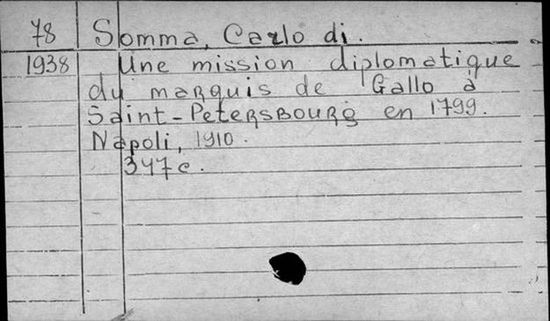 78 Somma, Carlo di.
1938 Une mission diplomatique
du marquis de Gallo à
Saint-Petersbourg en 1799.
Napoli, 1910.
347c.